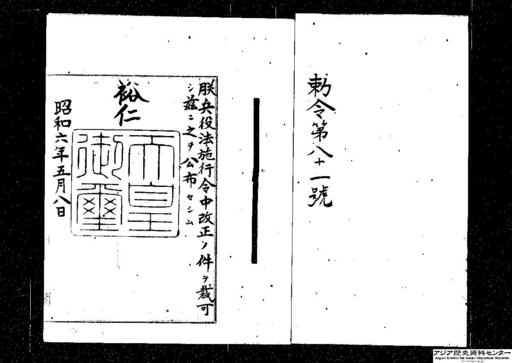 勅令第八十一號
朕兵役法施行令中改正ノ件ヲ裁可
シ茲ニ之ヲ公布セシム
裕仁
天皇
御璽
昭和六年五月八日
アジア歴史資料センター
Japan Center for Asian Historical Records